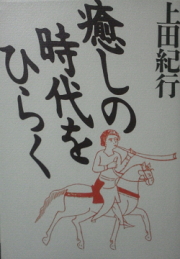 上田紀行
癒しの
時代を
ひらく